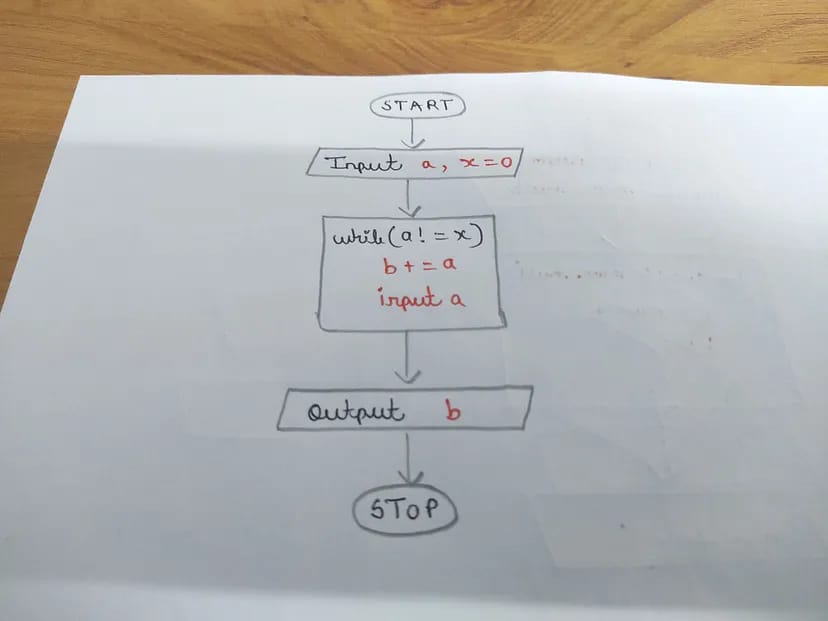 START
Input a, x=0
while(a! = x)
b + = a
input a
Output b
STOP